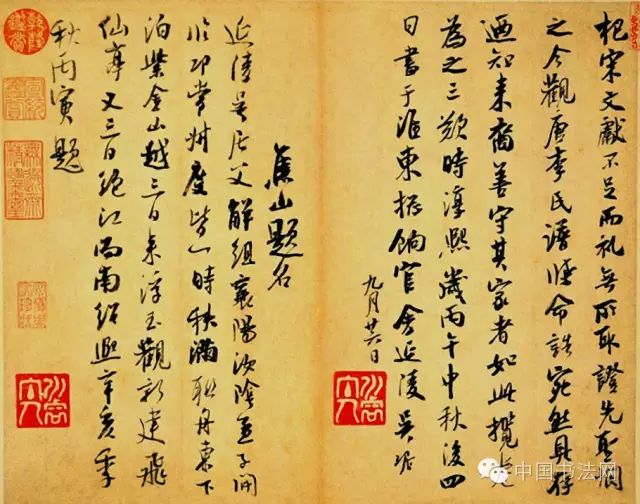 杞宋文獻不足而礼無所取證先聖閔
之今觀唐李氏譜牒命誥宛然具存
迺知来裔善守其家者如此攬卷
為之三歎時淳熙歲丙午中秋後四
日書于淮東揔餉官舍延陵吳琚
九月廿六日
焦山題名
延陵吳居父解組襄陽汝陰孟子開
臨邛常卅度皆一時秩滿聯舟東下
泊紫金山越三日来浮玉觀新建飛
仙亭又三日絕江而南紹熙辛亥季
秋丙寅題
乾隆鑑賞
中国书法网